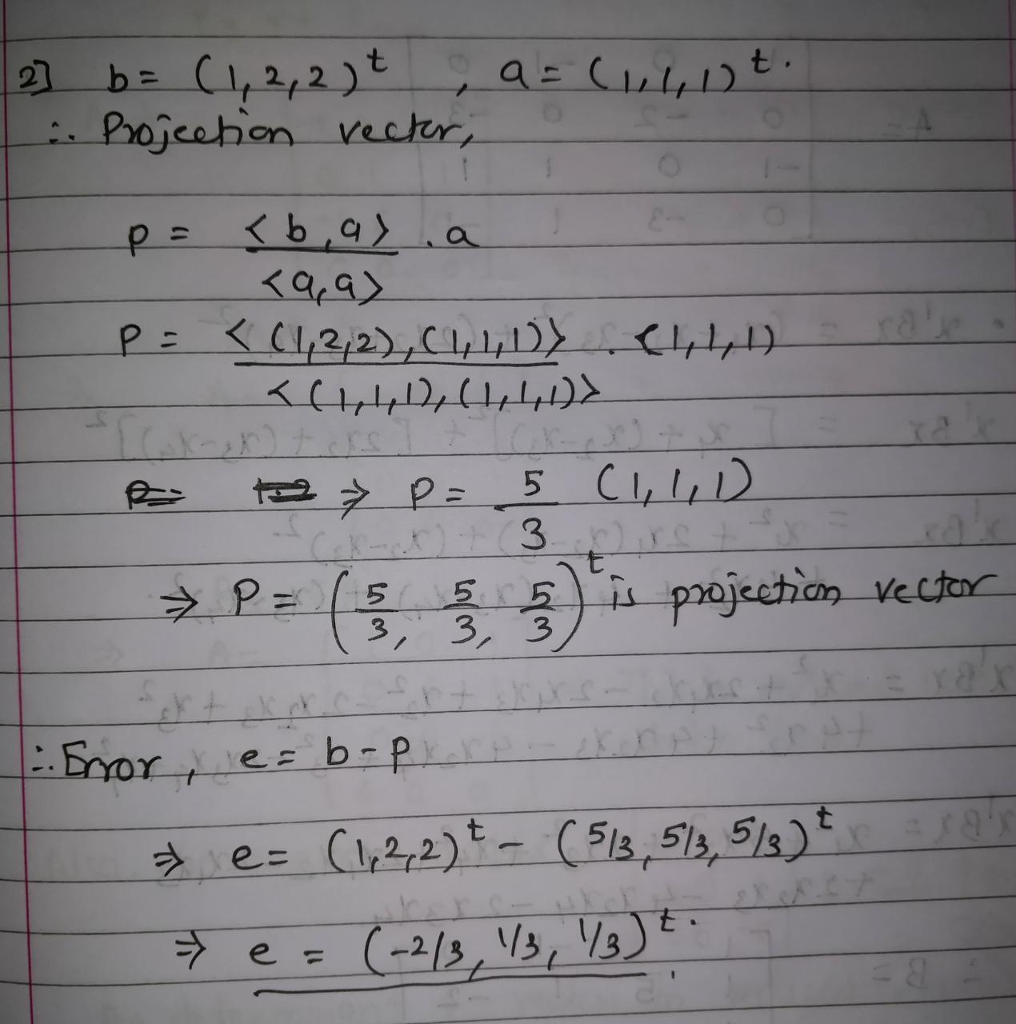 2] b = (1,2,2)ᵗ , a = (1,1,1)ᵗ.
∴ Projection vector,
p = <b,a> . a
<a,a>
P = <(1,2,2),(1,1,1)> . (1,1,1)
<(1,1,1),(1,1,1)>
⇒ P = 5 (1,1,1)
3
⇒ P = (5/3, 5/3, 5/3)ᵗ is projection vector
∴ Error, e = b - p
⇒ e = (1,2,2)ᵗ - (5/3, 5/3, 5/3)ᵗ
⇒ e = (-2/3, 1/3, 1/3)ᵗ.